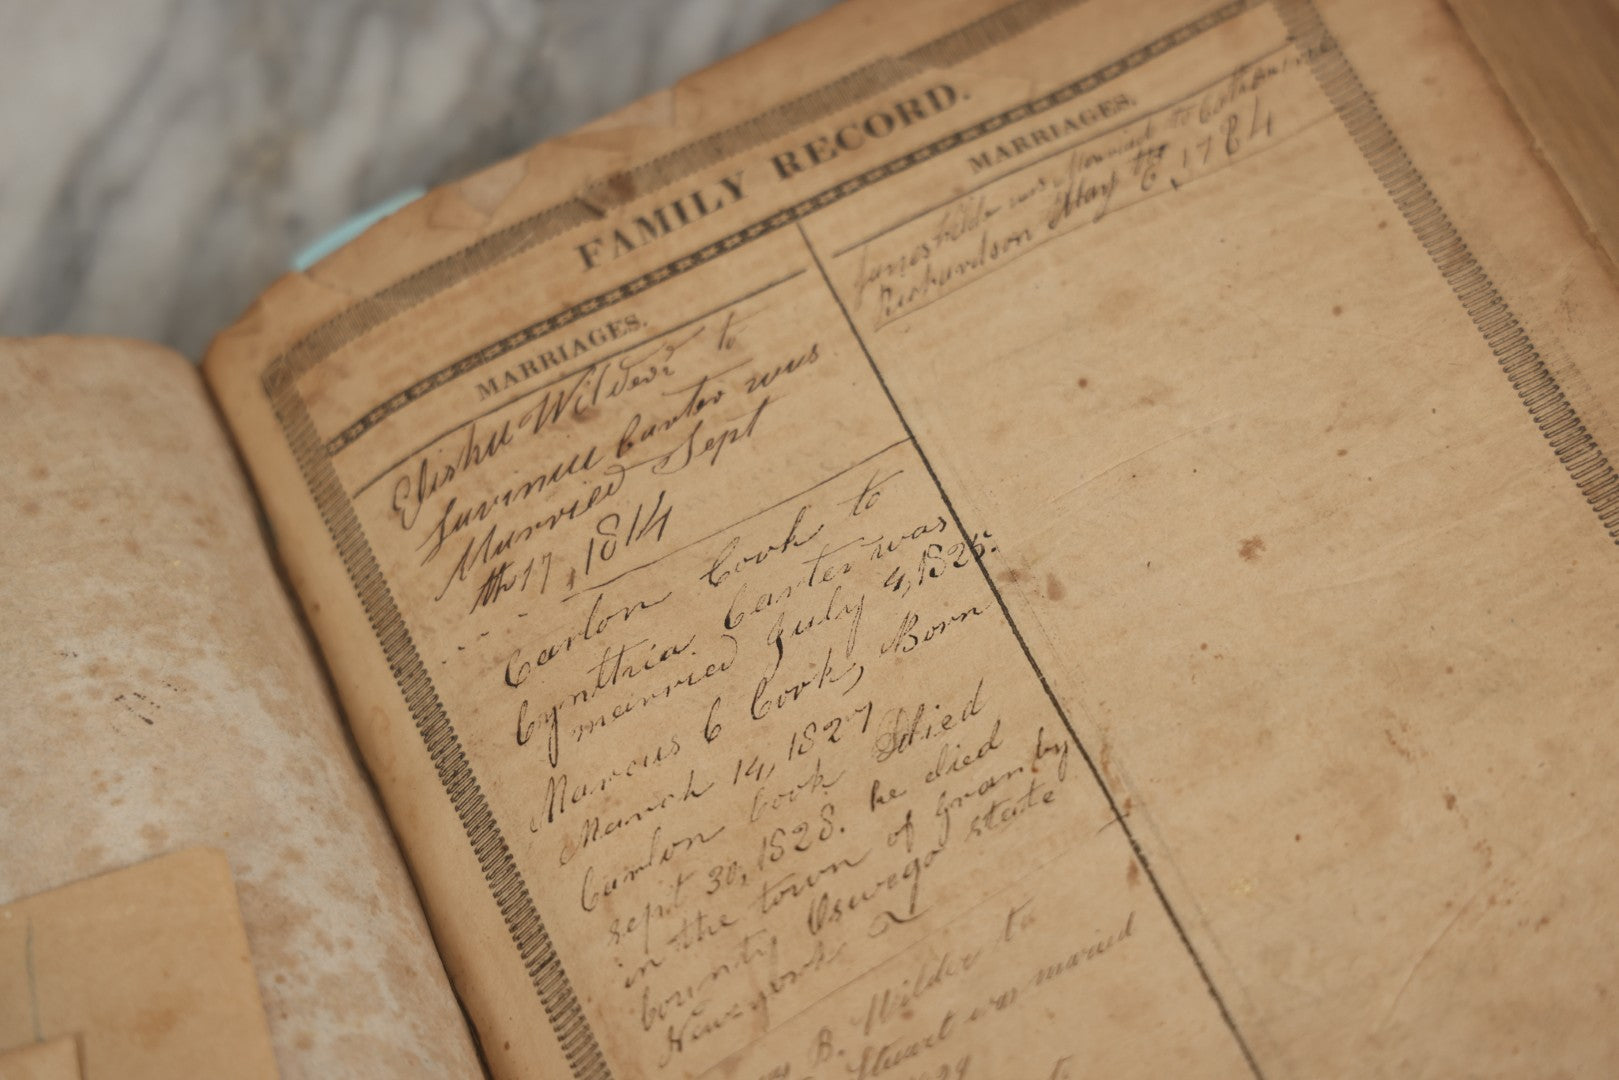 FAMILY RECORD.
MARRIAGES.
Elishu Wilder to
Lavinia Carter was
Married Sept
th 17, 1814
Carlon Cook to
Cynthia Carter was
married July 4, 1825.
Marcus C Cook, Born
March 14, 1827
Carlon Cook Died
sept 30, 1828. he died
in the town of Granby
County Oswego state
Newyork
B. Wilder to
Stuart was married
to
MARRIAGES.
James Wilder was Married to Catharine
Richardson May th 6, 1784